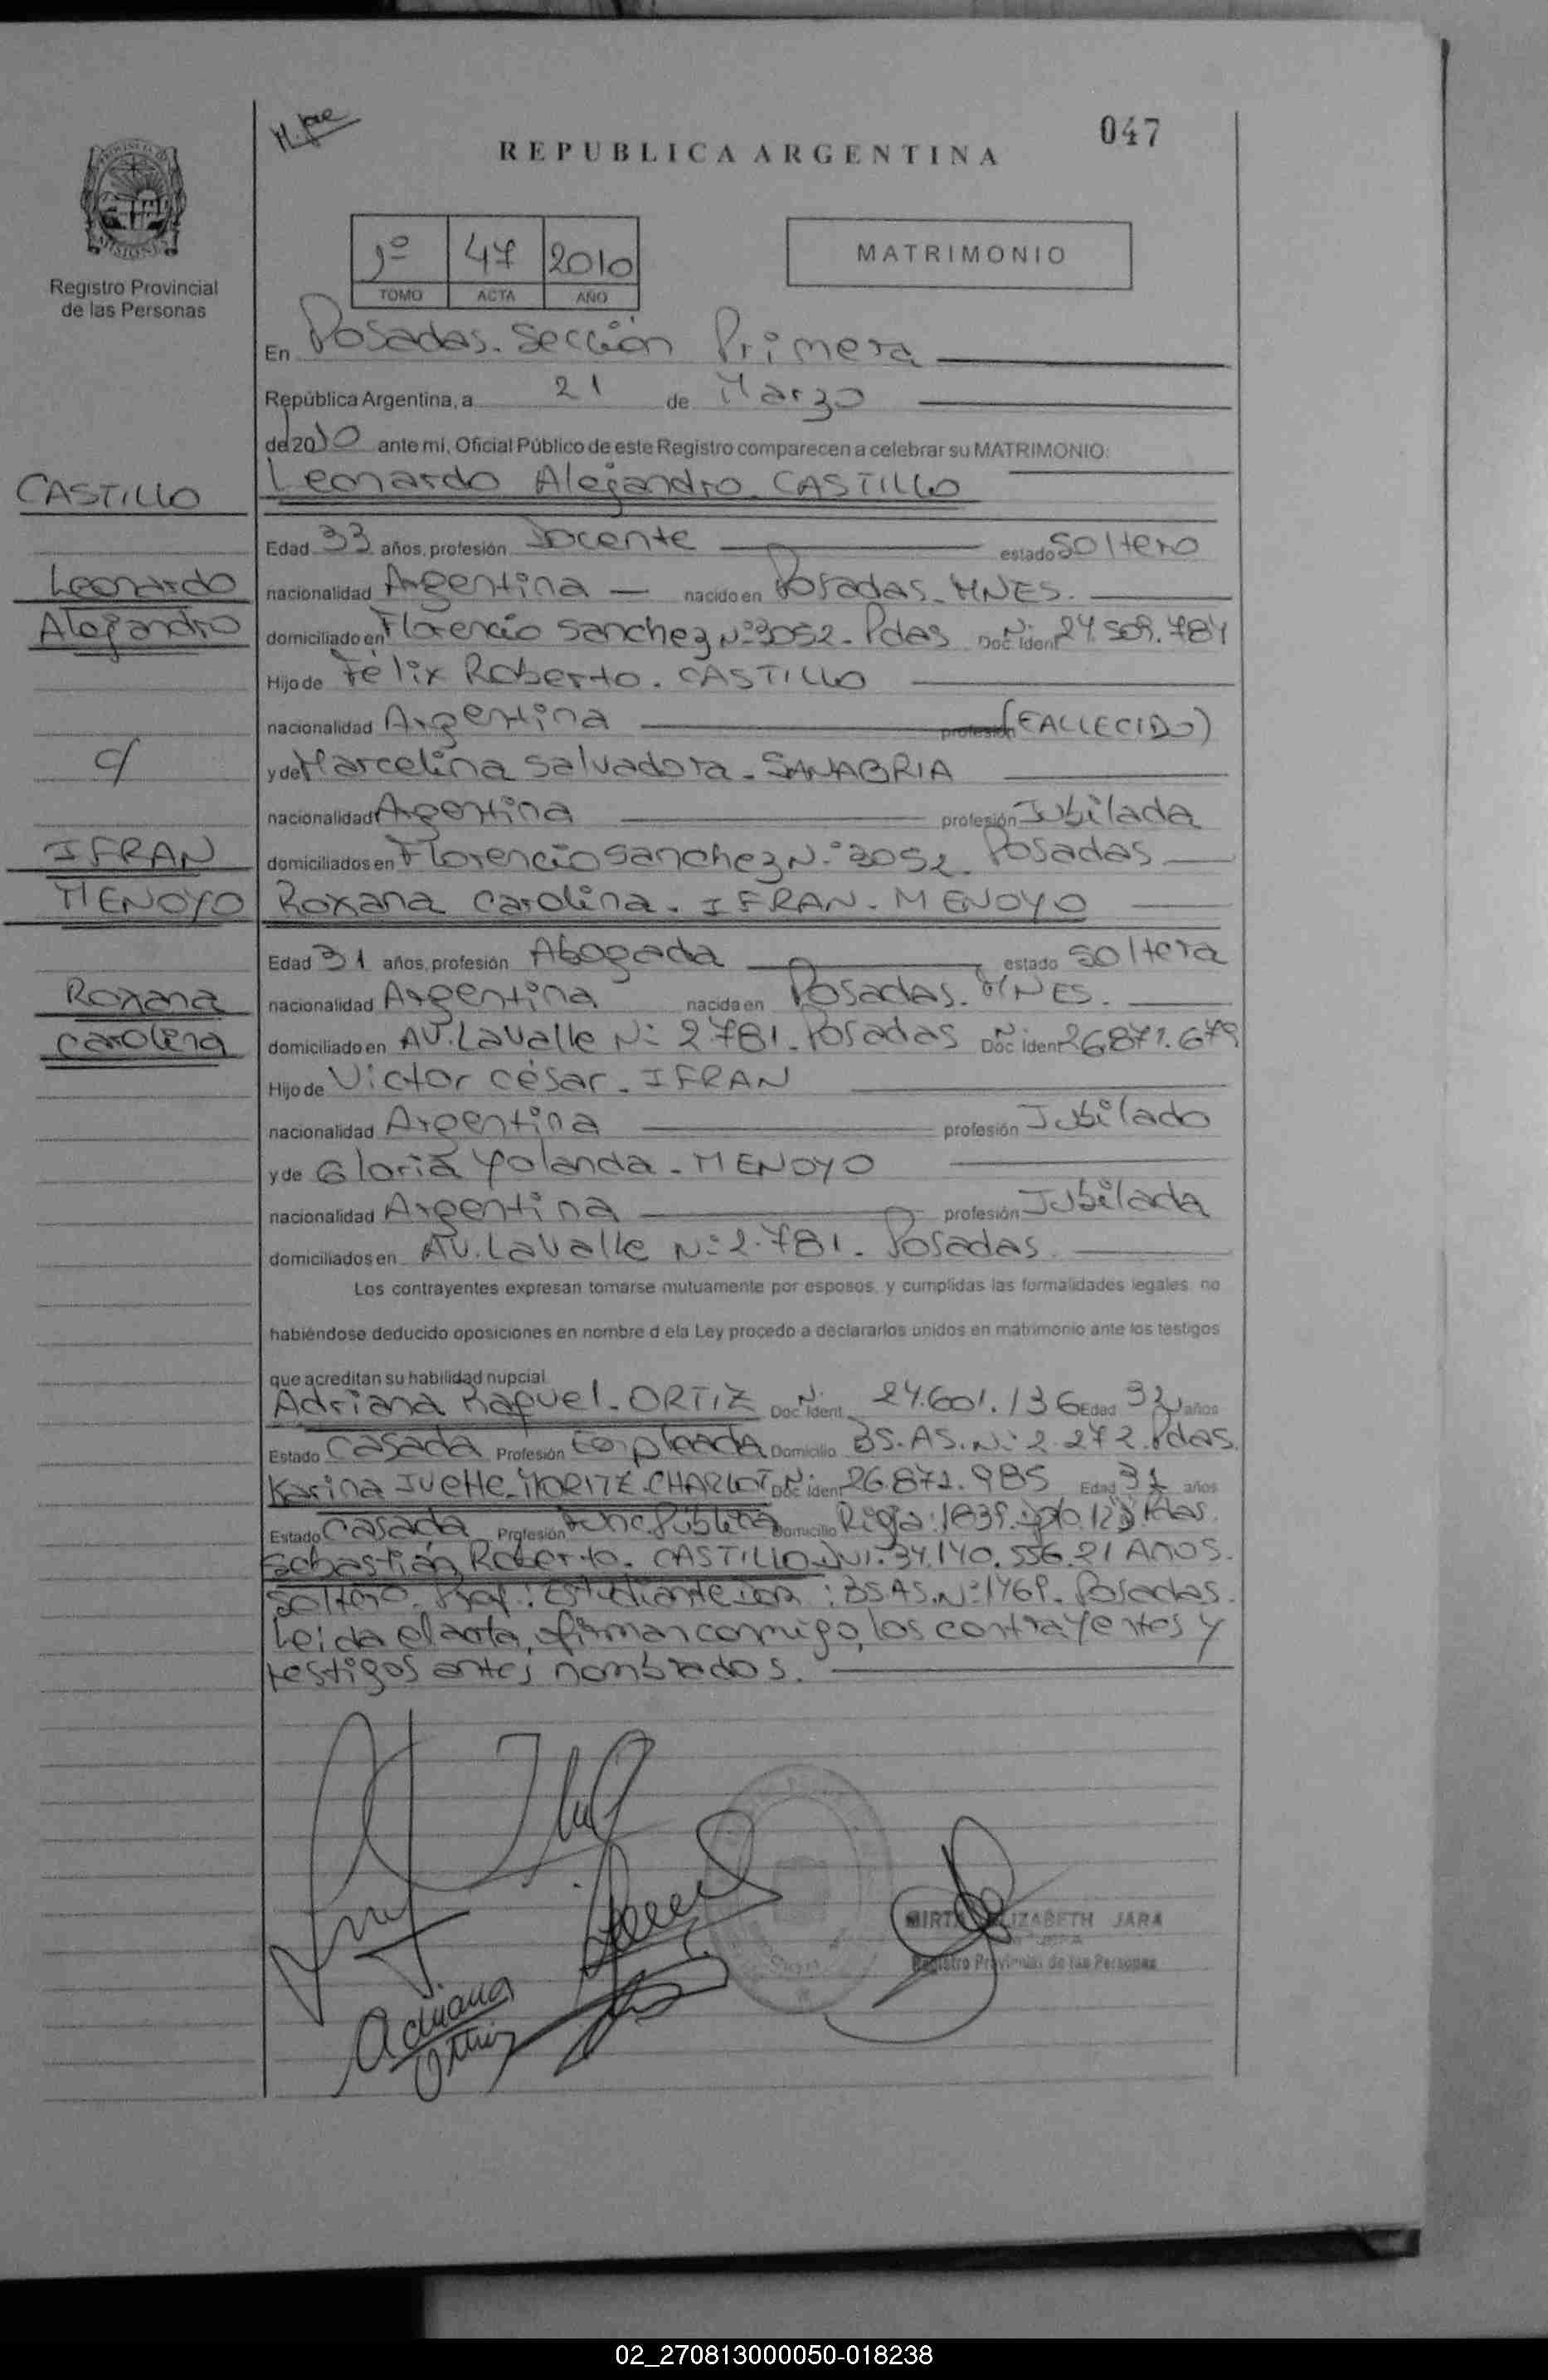 047
REPUBLICA ARGENTINA
PROVINCIA DE
MISIONES
Registro Provincial
de las Personas
1º 47 2010
TOMO ACTA AÑO
MATRIMONIO
En Posadas. Sección Primera
República Argentina, a 21 de Marzo
de 2010 ante mi, Oficial Público de este Registro comparecen a celebrar su MATRIMONIO:
CASTILLO
Leonardo Alejandro. CASTILLO
Edad 33 años, profesión Docente estado Soltero
Leonardo
nacionalidad Argentina — nacido en Posadas - MNES.
Alejandro
domiciliado en Florencio Sanchez Nº 3052 - Pdas Doc. Ident Nº 24.509.784
Hijo de Félix Roberto. CASTILLO
nacionalidad Argentina profesión (FALLECIDO)
c/
y de Marcelina Salvadora - SANABRIA
nacionalidad Argentina profesión Jubilada
IFRAN
domiciliados en Florencio Sanchez N.º 3052. Posadas
MENOYO
Roxana Carolina - IFRAN - MENOYO
Edad 31 años, profesión Abogada estado Soltera
Roxana
nacionalidad Argentina nacida en Posadas. MNES.
Carolina
domiciliado en AV. Lavalle Nº 2.781 - Posadas Doc Ident Nº 26.871.679
Hijo de Victor César - IFRAN
nacionalidad Argentina profesión Jubilado
y de Gloria Yolanda - MENOYO
nacionalidad Argentina profesión Jubilada
domiciliados en AV. Lavalle Nº 2.781 - Posadas
Los contrayentes expresan tomarse mutuamente por esposos, y cumplidas las formalidades legales, no
habiéndose deducido oposiciones en nombre d ela Ley procedo a declararlos unidos en matrimonio ante los testigos
que acreditan su habilidad nupcial
Adriana Raquel - ORTIZ Doc Ident. Nº 24.601.136 Edad 32 años
Estado Casada Profesión Empleada Domicilio BS. AS. Nº 2.272. Pdas.
Karina Ivette - MORITZ - CHARLOT Doc Ident Nº 26.871.985 Edad 31 años
Estado Casada Profesión Func. Pública Domicilio Rioja: 1839. Dpto. 12 Pdas.
Sebastián Roberto. CASTILLO - DNI: 34.140.556. 21 Años.
Soltero. Prof: Estudiante Dom: BS AS. Nº: 1769. Posadas.
Leída el acta, firman conmigo, los contrayentes y
testigos antes nombrados.
Adriana
Ortiz
MIRTA ELIZABETH JARA
JEFA
Registro Provincial de las Personas
02_270813000050-018238